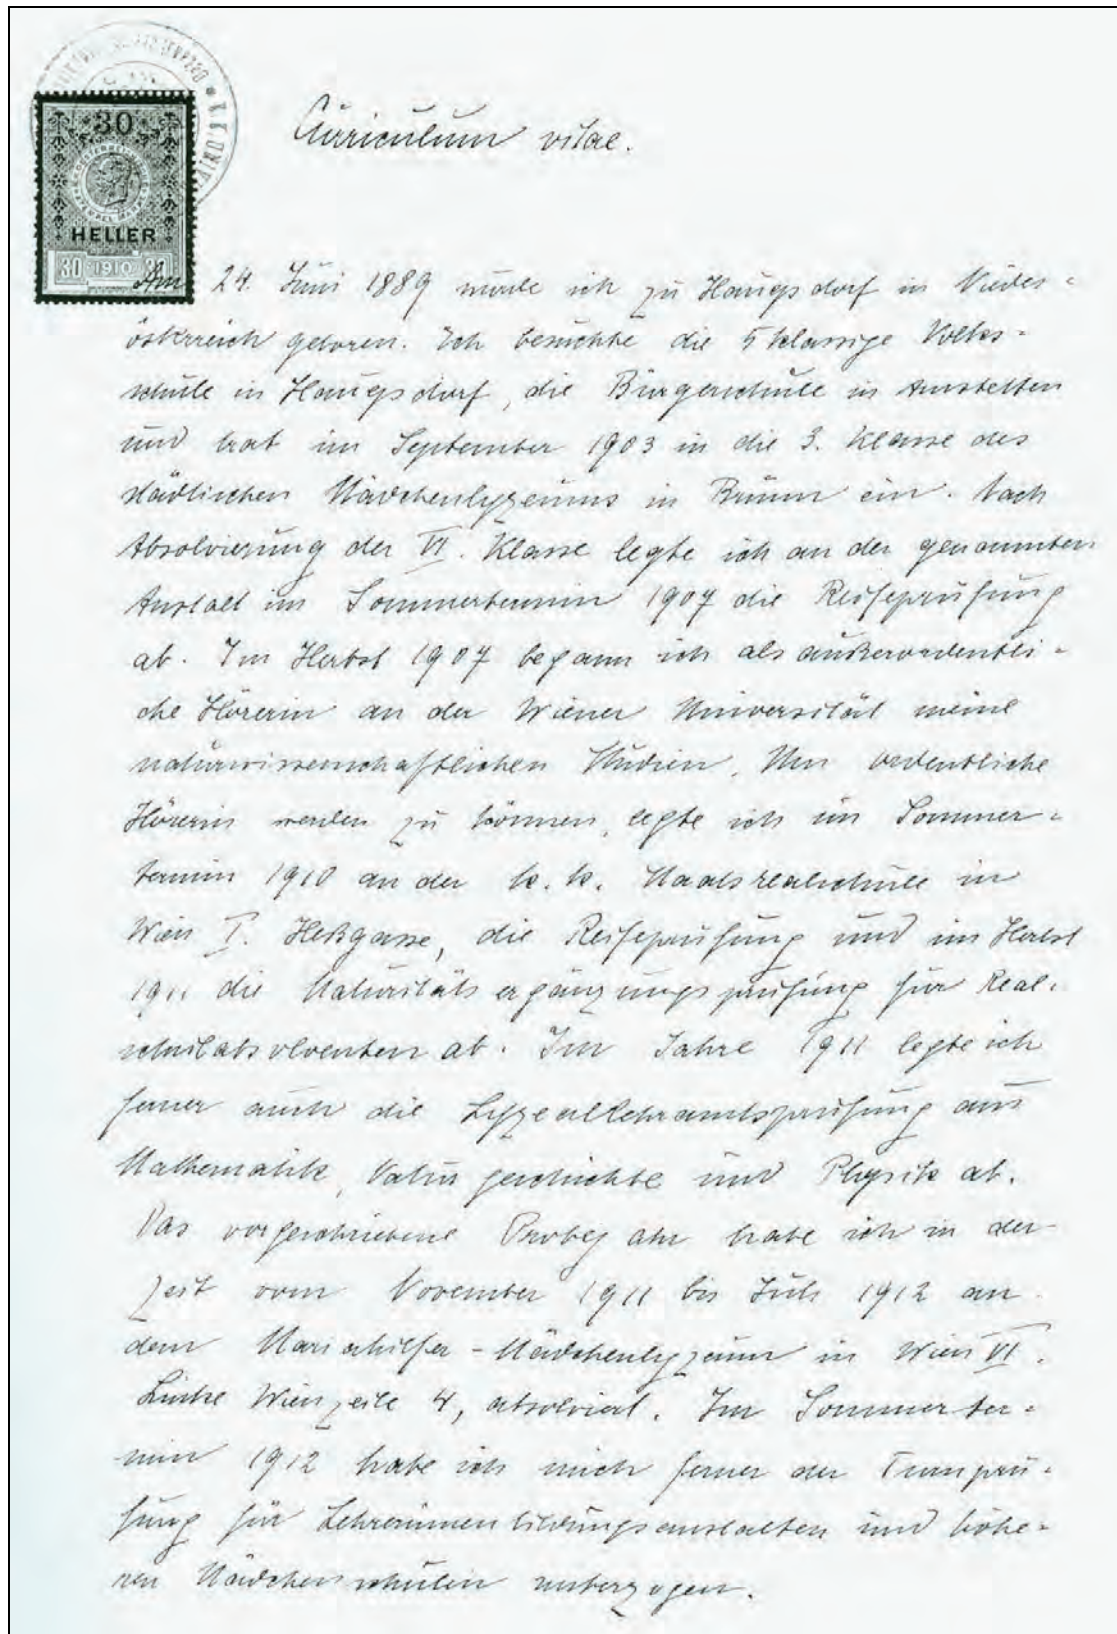 30
HELLER
30 1910 30
K. K. UNIV
Curiculum vitae.
Am 24. Juni 1889 wurde ich zu Haugsdorf in Nieder=
österreich geboren. Ich besuchte die 5 klassige Volks=
schule in Haugsdorf, die Bürgerschule in Amstetten
und trat im September 1903 in die 3. Klasse des
städtischen Mädchenlyzeums in Brünn ein. Nach
Absolvierung der VI. Klasse legte ich an der genannten
Anstalt im Sommertermin 1907 die Reifeprüfung
ab. Im Herbst 1907 begann ich als außerordentli=
che Hörerin an der Wiener Universität meine
naturwissenschaftlichen Studien. Um ordentliche
Hörerin werden zu können, legte ich im Sommer=
termin 1910 an der k. k. Staatsrealschule in
Wien I. Heßgasse, die Reifeprüfung und im Herbst
1911 die Maturitätsergänzungsprüfung für Real=
schulabsolventen ab. Im Jahre 1911 legte ich
ferner auch die Lyzeallehramtsprüfung aus
Mathematik, Naturgeschichte und Physik ab.
Das vorgeschriebene Probejahr habe ich in der
Zeit vom November 1911 bis Juli 1912 an
dem Mariahilfer-Mädchenlyzeum in Wien VI.
Linke Wienzeile 4, absolviert. Im Sommerter=
min 1912 habe ich mich ferner der Turnprü=
fung für Lehrerinnenbildungsanstalten und höhe=
ren Mädchenschulen unterzogen.